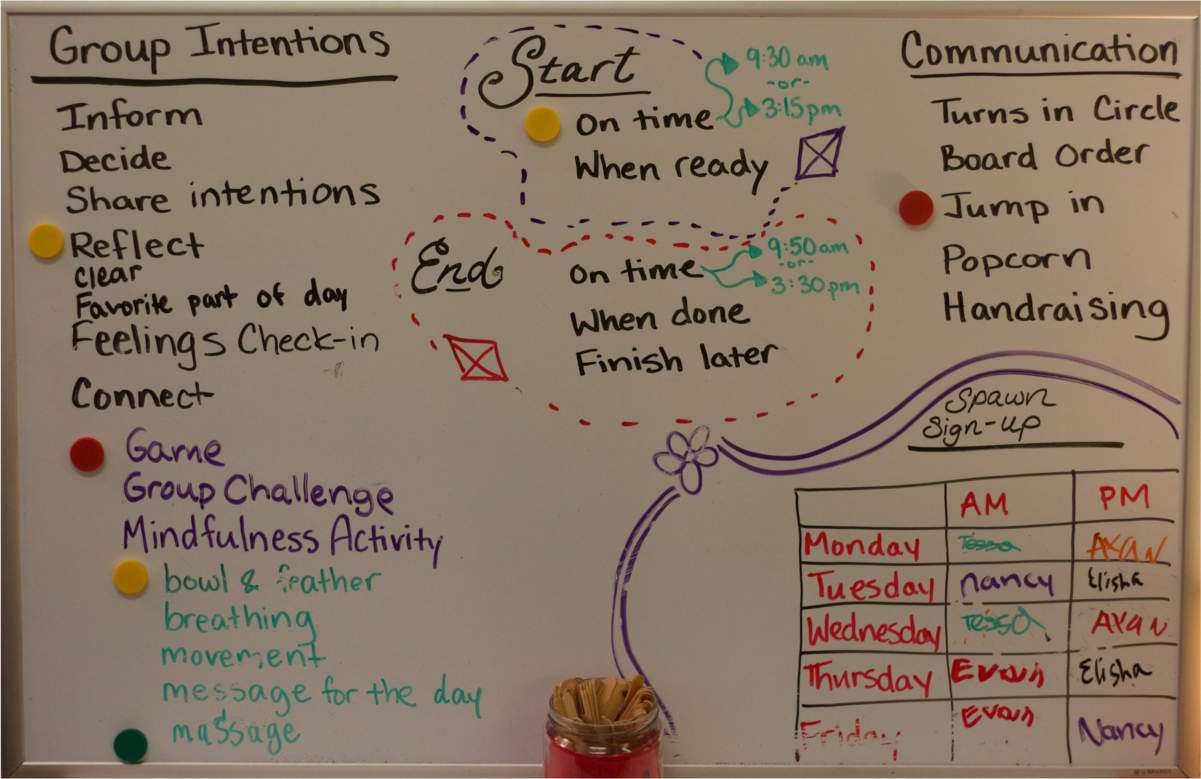 Group Intentions
Inform
Decide
Share intentions
Reflect
clear
Favorite part of day
Feelings Check-in
Connect
Game
Group Challenge
Mindfulness Activity
bowl & feather
breathing
movement
message for the day
massage
Start
On time
9:30 am
-or-
3:15pm
When ready
End
On time
9:50am
-or-
3:30pm
When done
Finish later
Communication
Turns in Circle
Board Order
Jump in
Popcorn
Handraising
Spawn
Sign-up
AM PM
Monday Tessa AYAN
Tuesday nancy Elisha
Wednesday Tessa AYAN
Thursday Evan Elisha
Friday Evan Nancy